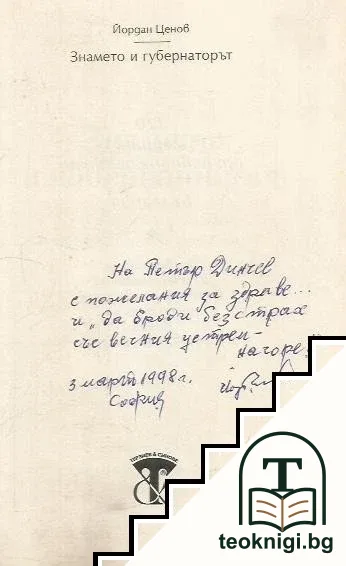 Йордан Ценов
Знамето и губернаторът
На Петър Динчев
с пожелания за здраве...
и „да броди без страх
със вечния устрем -
нагоре"
3 март 1998 г.
София
T
teoknigi.bg